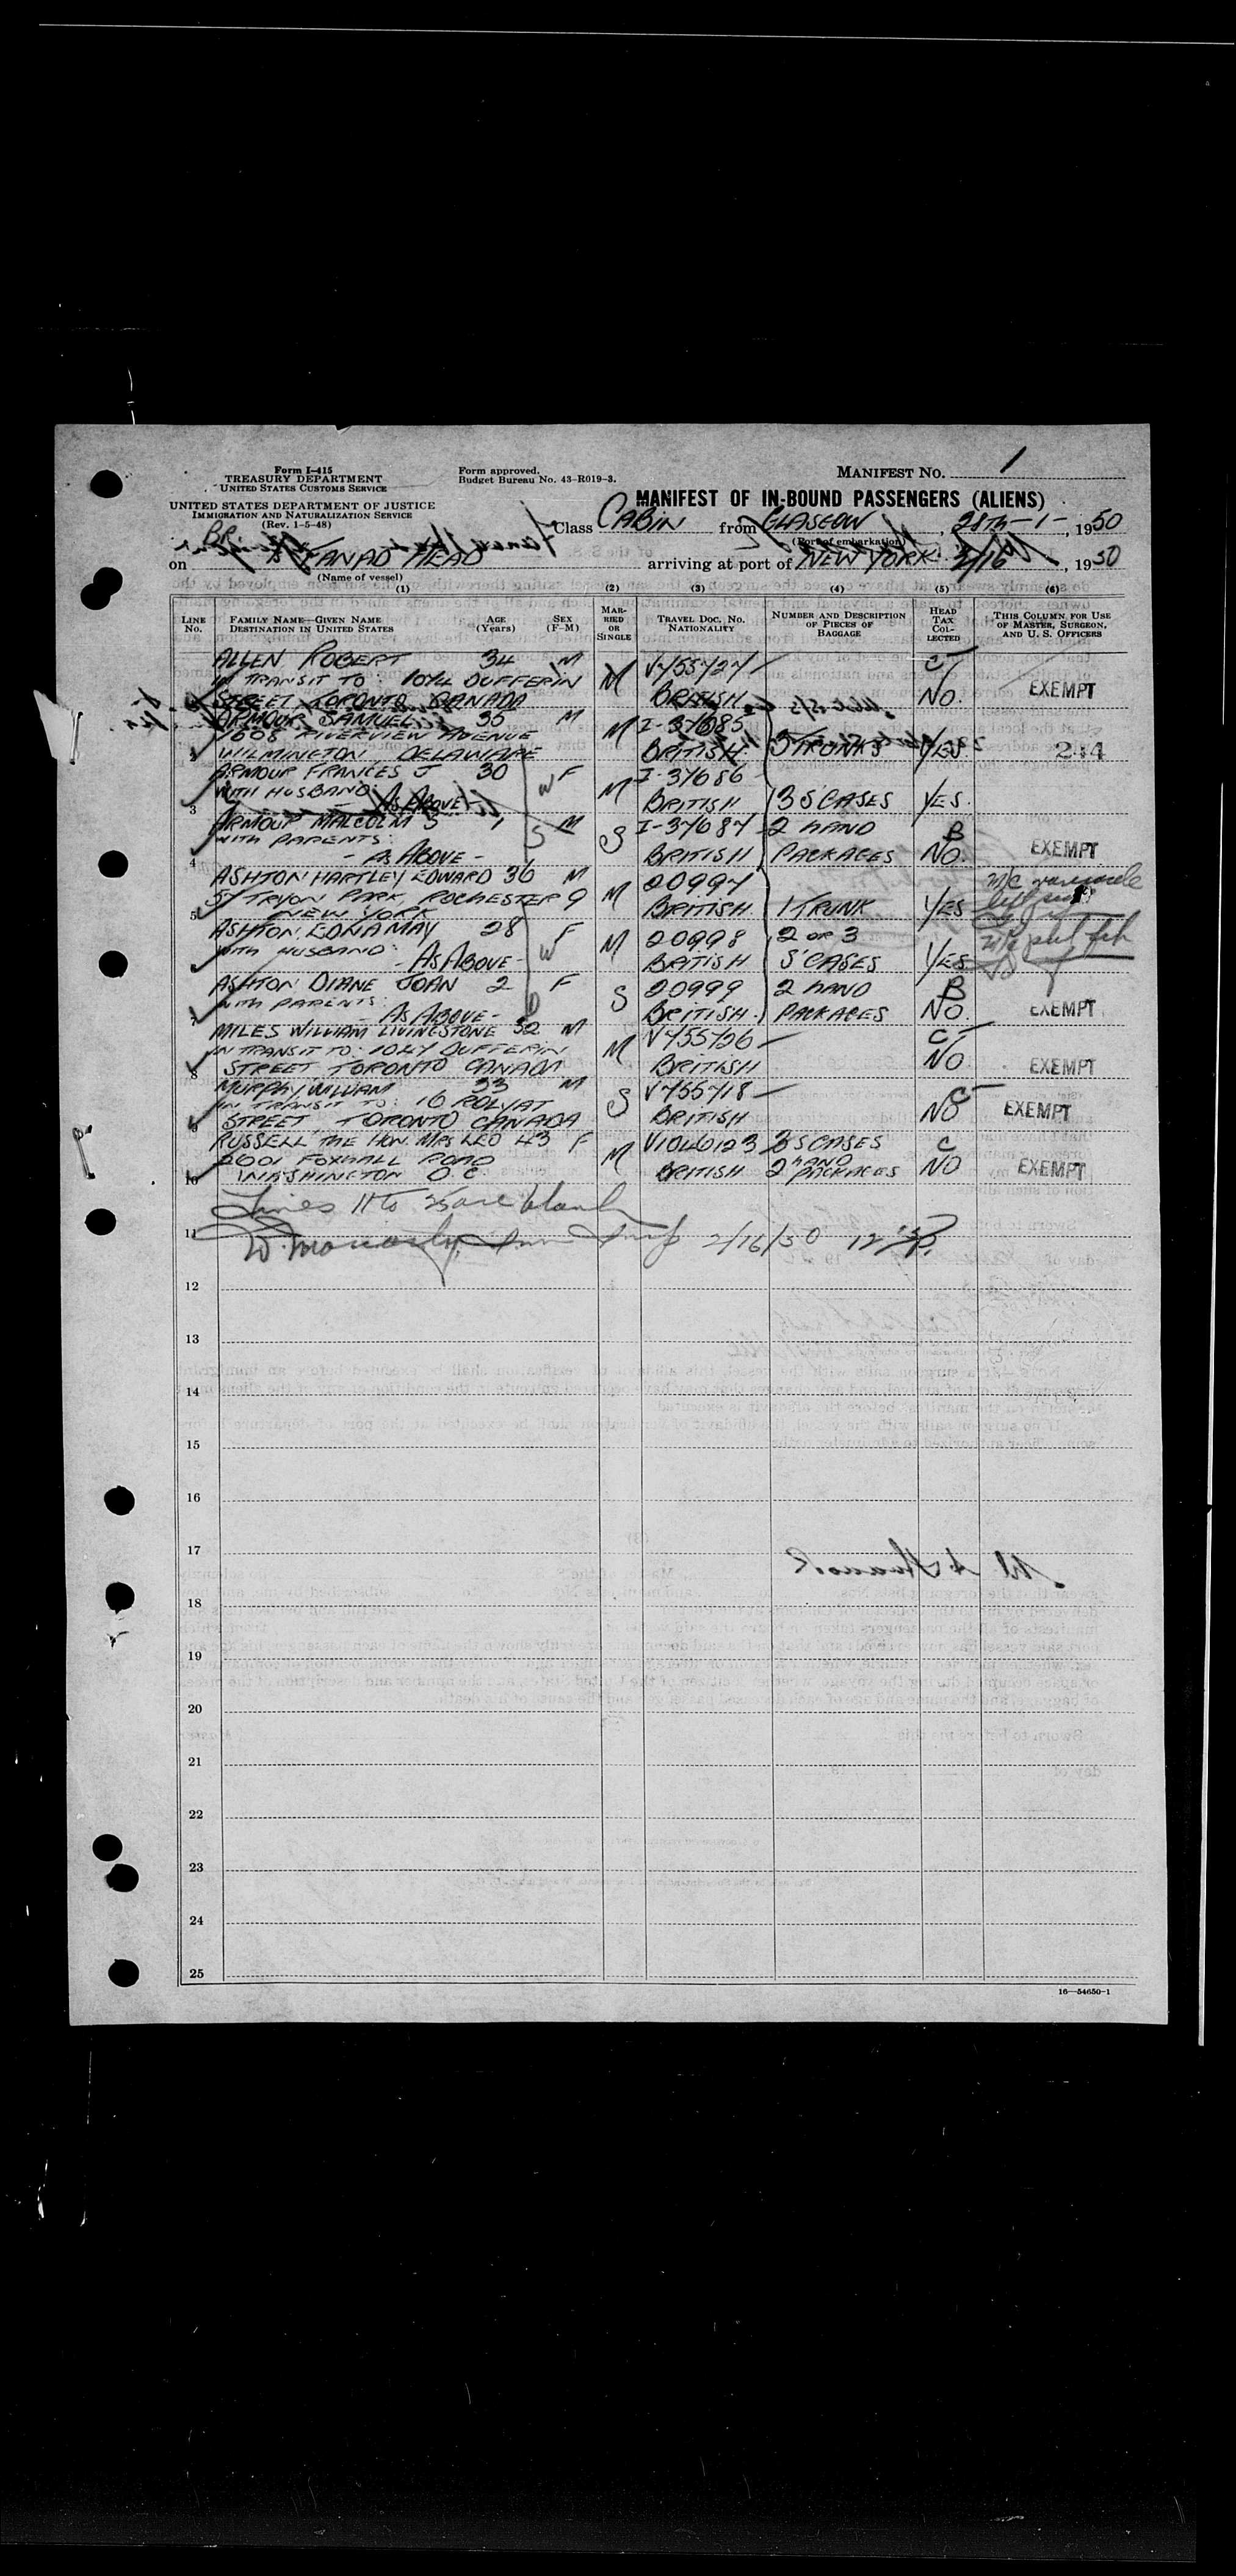 Form I-415
TREASURY DEPARTMENT
UNITED STATES CUSTOMS SERVICE
Form approved.
Budget Bureau No. 43-R019-3.
MANIFEST NO. 1
UNITED STATES DEPARTMENT OF JUSTICE
IMMIGRATION AND NATURALIZATION SERVICE
(Rev. 1-5-48)
MANIFEST OF IN-BOUND PASSENGERS (ALIENS)
Class CABIN from GLASGOW, 28TH-1-, 1950
(Port of embarkation)
on BR FANAD HEAD arriving at port of NEW YORK 2/16, 1950
(Name of vessel)
(1) (2) (3) (4) (5) (6)
LINE NO. FAMILY NAME—GIVEN NAME DESTINATION IN UNITED STATES AGE (Years) SEX (F-M) MARRIED OR SINGLE TRAVEL DOC. NO. NATIONALITY NUMBER AND DESCRIPTION OF PIECES OF BAGGAGE HEAD TAX COLLECTED THIS COLUMN FOR USE OF MASTER, SURGEON, AND U. S. OFFICERS
ALLEN ROBERT 34 M M V455427 C
IN TRANSIT TO: DUFFERIN
STREET TORONTO CANADA BRITISH NO. EXEMPT
ARMOUR SAMUEL 35 M M I-37685
1608 RIVERVIEW AVENUE
2 WILMINGTON DELAWARE BRITISH 3 TRUNKS YES 244
ARMOUR FRANCES J 30 W F M I-37686
WITH HUSBAND:
3 - AS ABOVE - BRITISH 3 S'CASES YES.
ARMOUR MALCOLM S 1 S M S I-37687 2 HAND B
WITH PARENTS:
4 - AS ABOVE - BRITISH PACKAGES NO. EXEMPT
ASHTON HARTLEY EDWARD 36 M M 20997
57 TRYON PARK, ROCHESTER 9
5 NEW YORK BRITISH 1 TRUNK YES
ASHTON EDNA MAY 28 F M 20998 2 OR 3
WITH HUSBAND: W
- AS ABOVE - BRITISH S'CASES YES
ASHTON DIANE JOAN 2 F S 20999 2 HAND B
WITH PARENTS:
7 - AS ABOVE - D BRITISH. PACKAGES NO EXEMPT
MILES WILLIAM LIVINGSTONE 52 M M V455426 C
IN TRANSIT TO: DUFFERIN
8 STREET TORONTO CANADA BRITISH NO EXEMPT
MURPHY WILLIAM 33 M S V455418 C
IN TRANSIT TO: 16 ROLYAT
9 STREET TORONTO CANADA BRITISH NO EXEMPT
RUSSELL THE HON MRS LEO 43 F M 3 S'CASES C
2001 FOXHALL ROAD
10 WASHINGTON D.C. BRITISH 2 HAND PACKAGES NO EXEMPT
Lines 11 to 25 are blank
11 2/16/50
12
13
14
15
16
17
18
19
20
21
22
23
24
25
16—54650-1